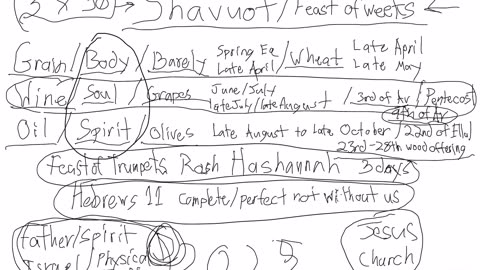 2 x 50 → Shavuot / Feast of weeks ←
Grain / Body / Barely Spring Eq Late April / Wheat Late April Late May
Wine Soul Grapes June/July late July/late August / 3rd of Av / Pentecost
9th of Av
Oil Spirit / Olives Late August to Late October / 22nd of Elul
23rd-28th wood offering
Feast of Trumpets Rosh Hashannah 3 days
Hebrews 11 complete/perfect not without us
Father/Spirit
Israel / Physical
Jesus
Church